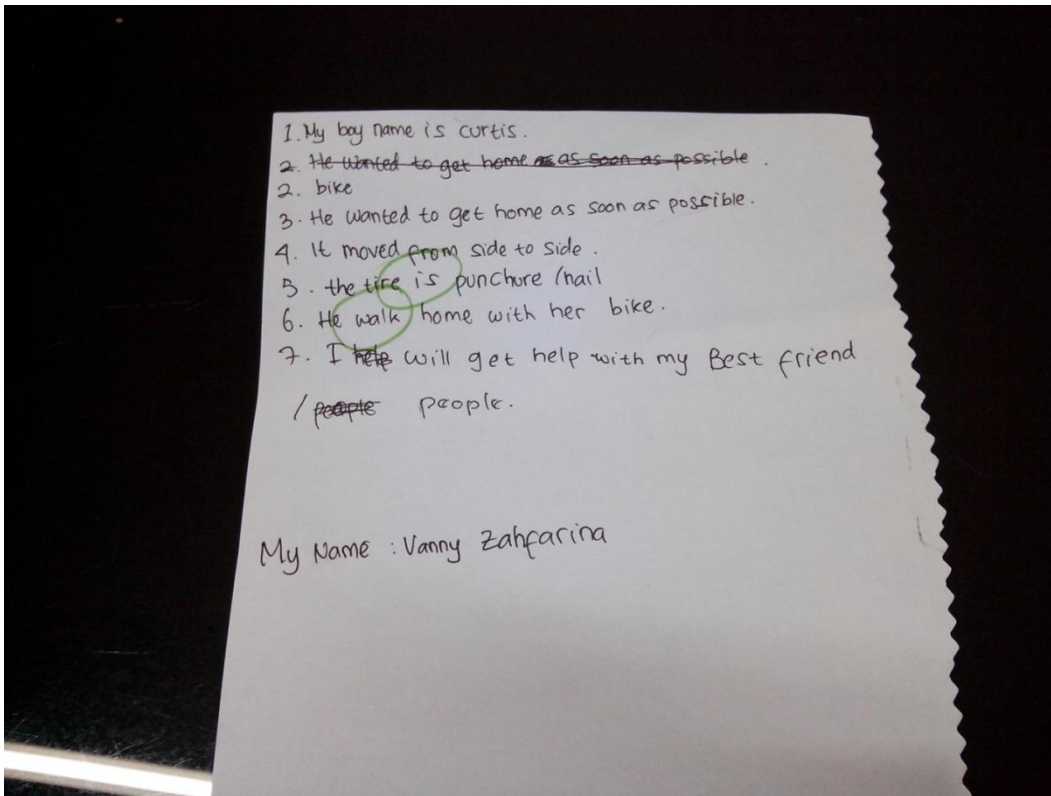 1. My boy name is curtis.
2. He wanted to get home as as soon as possible.
2. bike
3. He wanted to get home as soon as possible.
4. It moved from side to side.
5. the tire is punchure /nail
6. He walk home with her bike.
7. I help will get help with my Best friend
/ people people.
My Name : Vanny Zahfarina